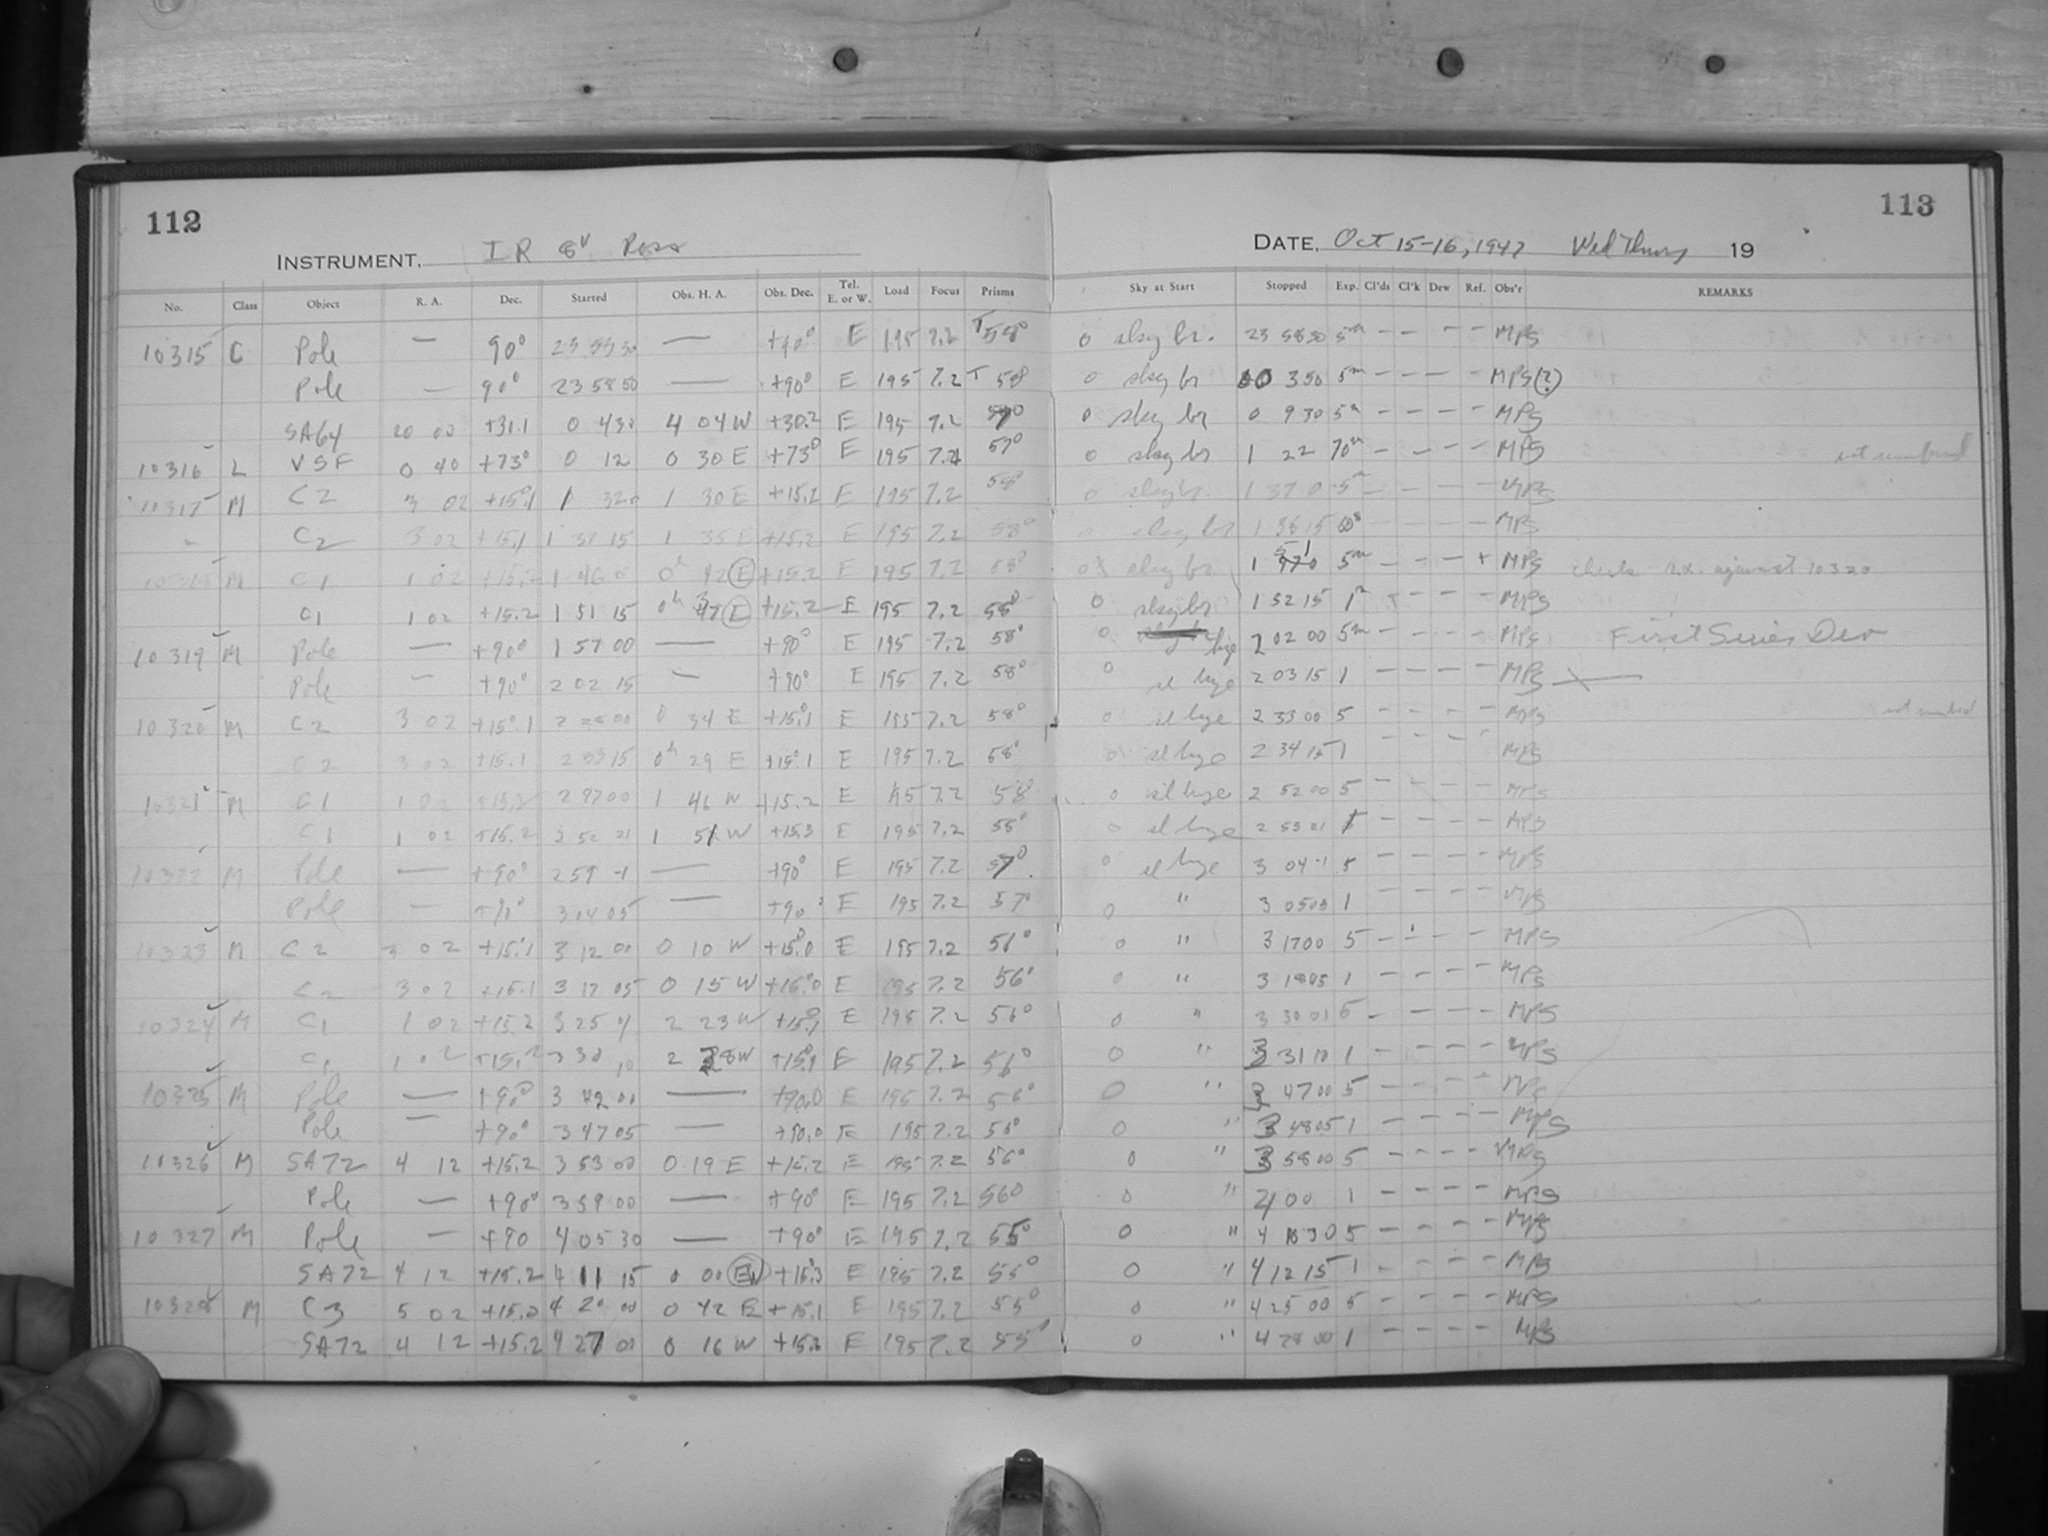 112
113
INSTRUMENT. IR 8" Ross
DATE. Oct 15-16, 1947 Wed Thurs 19
No. Class Object R. A. Dec. Started Obs. H. A. Obs. Dec. Tel. E. or W. Load Focus Prisms Sky at Start Stopped Exp. Cl'ds Cl'k Dew Ref. Obs'r REMARKS
10315 C Pole — 90° 23 53 30 — +90° E 195 7.2 T 58° 0 sky br. 23 58 30 5m - - - - MPS
Pole — 90° 23 58 50 — +90° E 195 7.2 T 58 0 sky br 00 3 50 5m - - - - MPS(?)
SA64 20 00 +31.1 0 4 30 4 04 W +30.2 E 195 7.2 0 sky br 0 9 30 5m - - - - MPS
10316 L VSF 0 40 +73° 0 12 0 30 E +73° E 195 7.2 57° 0 sky br 1 22 70m - - - - MPS
10317 M C2 3 02 +15.1 1 32 0 1 30 E +15.2 E 195 7.2 58° 0 sky br. 1 37 0 5m - - - - MPS
C2 3 02 +15.1 1 37 15 1 35 E +15.2 E 195 7.2 58° 0 sky br 1 38 15 60s - - - - MPS
10318 M C1 1 02 +15.2 1 46 0 0h 42 E +15.2 E 195 7.2 58° sky br 1 51 0 5m - - - + MPS check r.a. against 10320
C1 1 02 +15.2 1 51 15 0h 47 E +15.2 E 195 7.2 58° 0 sky br 1 52 15 1m - - - - MPS
10319 M Pole — +90° 1 57 00 — +90° E 195 7.2 58° 0 hze 2 02 00 5m - - - - MPS First Series Dev
Pole — +90° 2 02 15 — +90° E 195 7.2 58° 0 sl hze 2 03 15 1 - - - - MPS
10320 M C2 3 02 +15.1 2 28 00 0 34 E +15.1 E 195 7.2 58° 0 sl hze 2 33 00 5 - - - - MPS
C2 3 02 +15.1 2 33 15 0h 29 E +15.1 E 195 7.2 58° 0 sl hze 2 34 15 1 - - - - MPS
10321 M C1 1 02 +15.2 2 47 00 1 46 W +15.2 E 195 7.2 58 0 sl hze 2 52 00 5 - - - - MPS
C1 1 02 +15.2 2 52 21 1 51 W +15.3 E 195 7.2 58° 0 sl hze 2 53 21 1 - - - - MPS
10322 M Pole — +90° 2 59 — +90° E 195 7.2 57° 0 sl hze 3 04 5 - - - - MPS
Pole — +90° 3 04 05 — +90° E 195 7.2 57° 0 " 3 05 05 1 - - - - MPS
10323 M C2 3 02 +15.1 3 12 00 0 10 W +15.0 E 195 7.2 0 " 3 17 00 5 - - - - MPS
C2 3 02 +15.1 3 17 05 0 15 W E 195 7.2 56° 0 " 3 18 05 1 - - - - MPS
10324 M C1 1 02 +15.2 3 25 2 23 W +15.1 E 195 7.2 56° 0 " 3 30 01 5 - - - - MPS
C1 1 02 +15.2 3 30 10 2 28 W +15.1 E 195 7.2 56° 0 " 3 31 10 1 - - - - MPS
10325 M Pole — +90° 3 42 00 — +90.0 E 195 7.2 56° 0 " 3 47 00 5 - - - - MPS
Pole — +90° 3 47 05 — +90.0 E 195 7.2 56° 0 " 3 48 05 1 - - - - MPS
10326 M SA72 4 12 +15.2 3 53 00 0 19 E +15.2 E 195 7.2 56° 0 " 3 58 00 5 - - - - MPS
Pole — +90° 3 59 00 — +90° E 195 7.2 56° 0 " 4 00 1 - - - - MPS
10327 M Pole — +90 4 05 30 — +90° E 195 7.2 55° 0 " 4 10 30 5 - - - - MPS
SA72 4 12 +15.2 4 11 15 0 00 EW +15.3 E 195 7.2 55° 0 " 4 12 15 1 - - - - MPS
10328 M C3 5 02 +15.0 4 20 00 0 42 E +15.1 E 195 7.2 55° 0 " 4 25 00 5 - - - - MPS
SA72 4 12 +15.2 4 27 00 0 16 W +15.3 E 195 7.2 55° 0 " 4 28 00 1 - - - - MPS